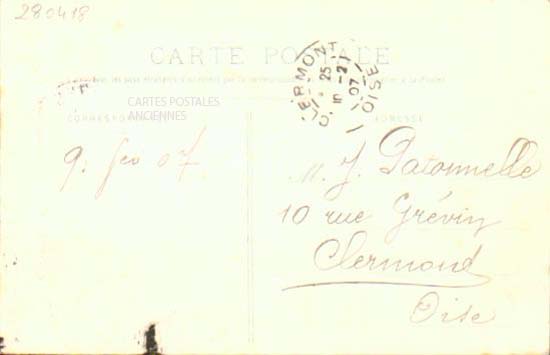 280418
CARTE POSTALE
CARTES POSTALES
ANCIENNES
CORRESPOND
ADRESSE
CLERMONT
25
-2
07
OISE
07
M. J. Patonnelle
10 rue Grévin
Clermond
Oise